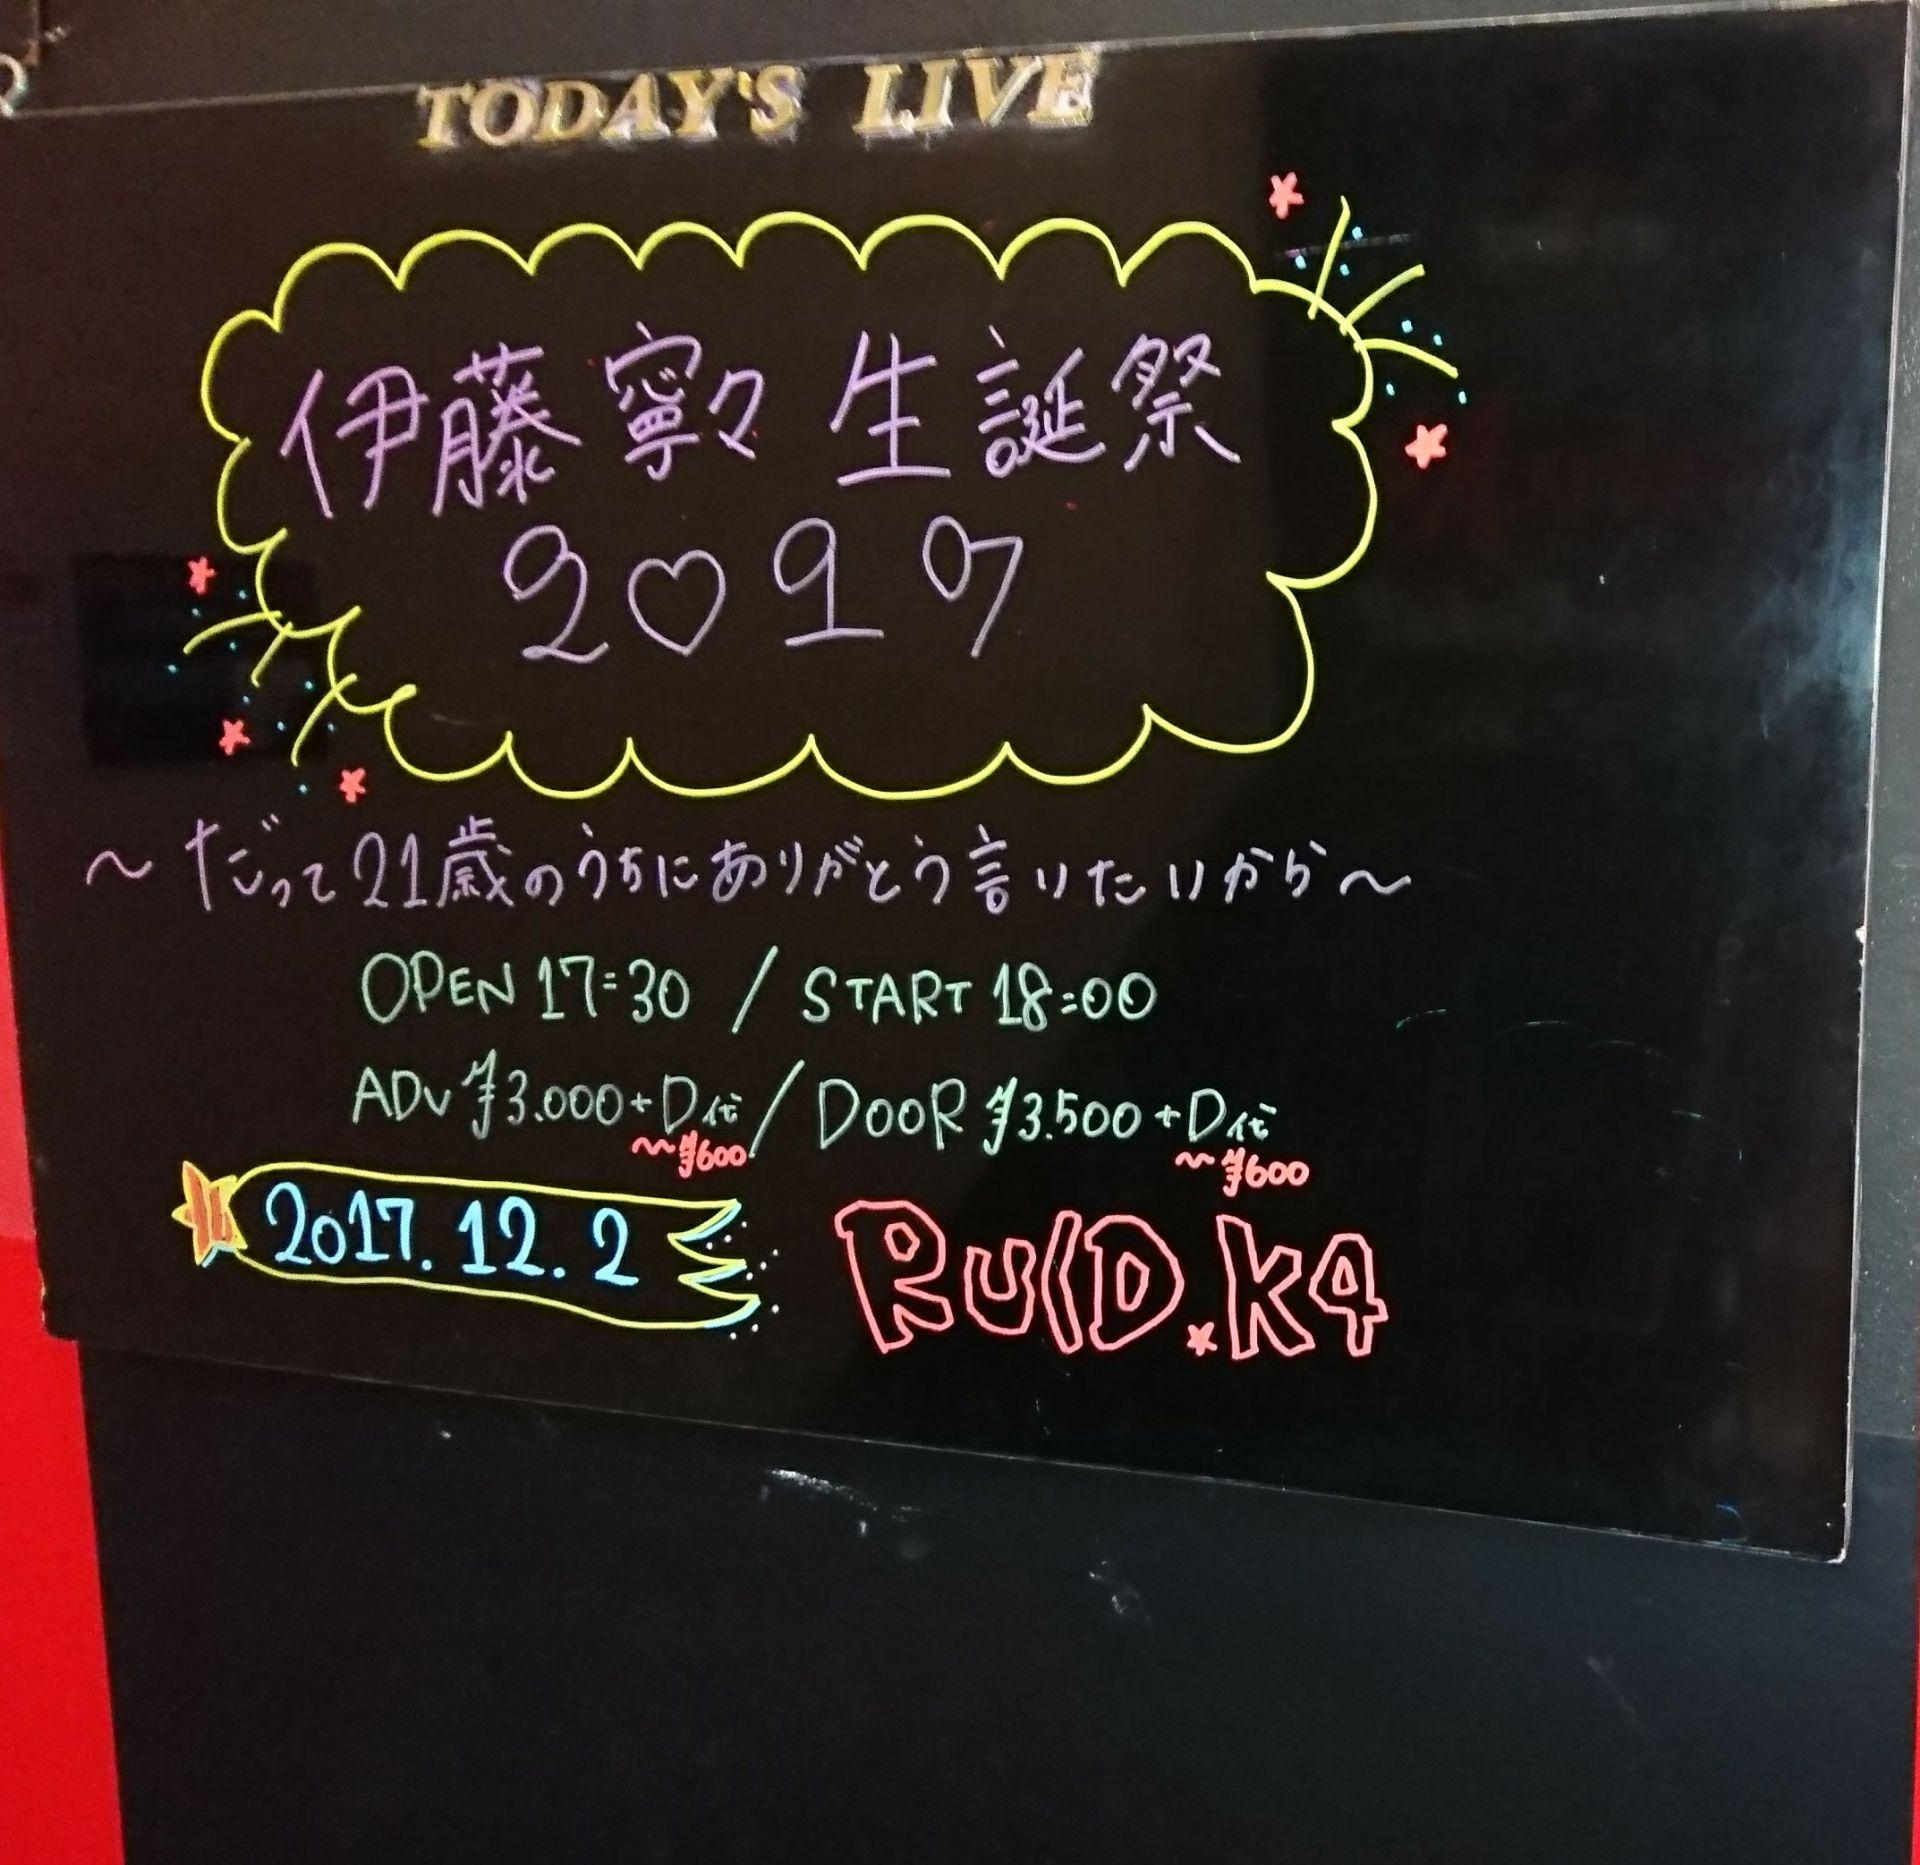 TODAY'S LIVE
伊藤寧々 生誕祭
2♡17
～だって21歳のうちにありがとう言いたいから～
OPEN 17:30 / START 18:00
ADV ¥3.000+D代 / DOOR ¥3.500+D代
～¥600 ～¥600
2017.12.2 RUIDO.K4